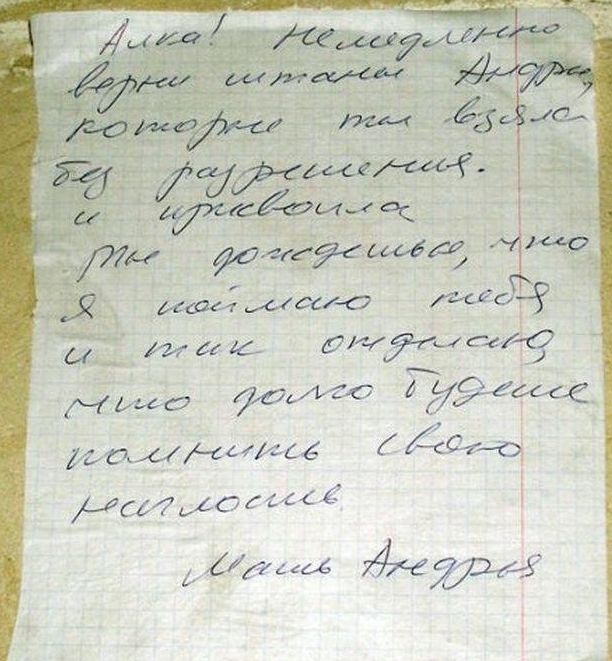 Алка! Немедленно
верни штаны Андрею,
которые ты взяла
без разрешения.
и присвоила
Ты дождешься, что
я поймаю тебя
и так отделаю,
что долго будешь
помнить свою
наглость
Мать Андрея